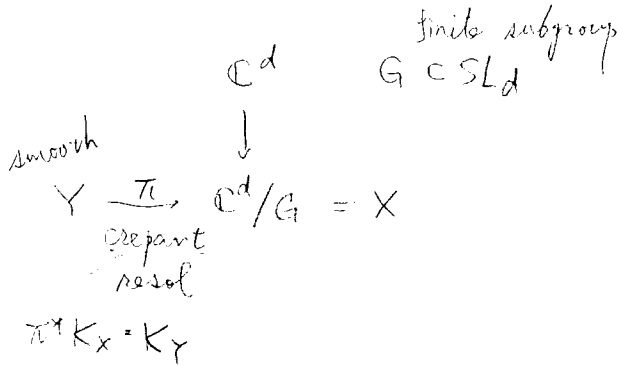 finite subgroup
ℂ^d G ⊂ SL_d
↓
smooth
Y —π→ ℂ^d/G = X
crepant
resol
π^* K_X = K_Y